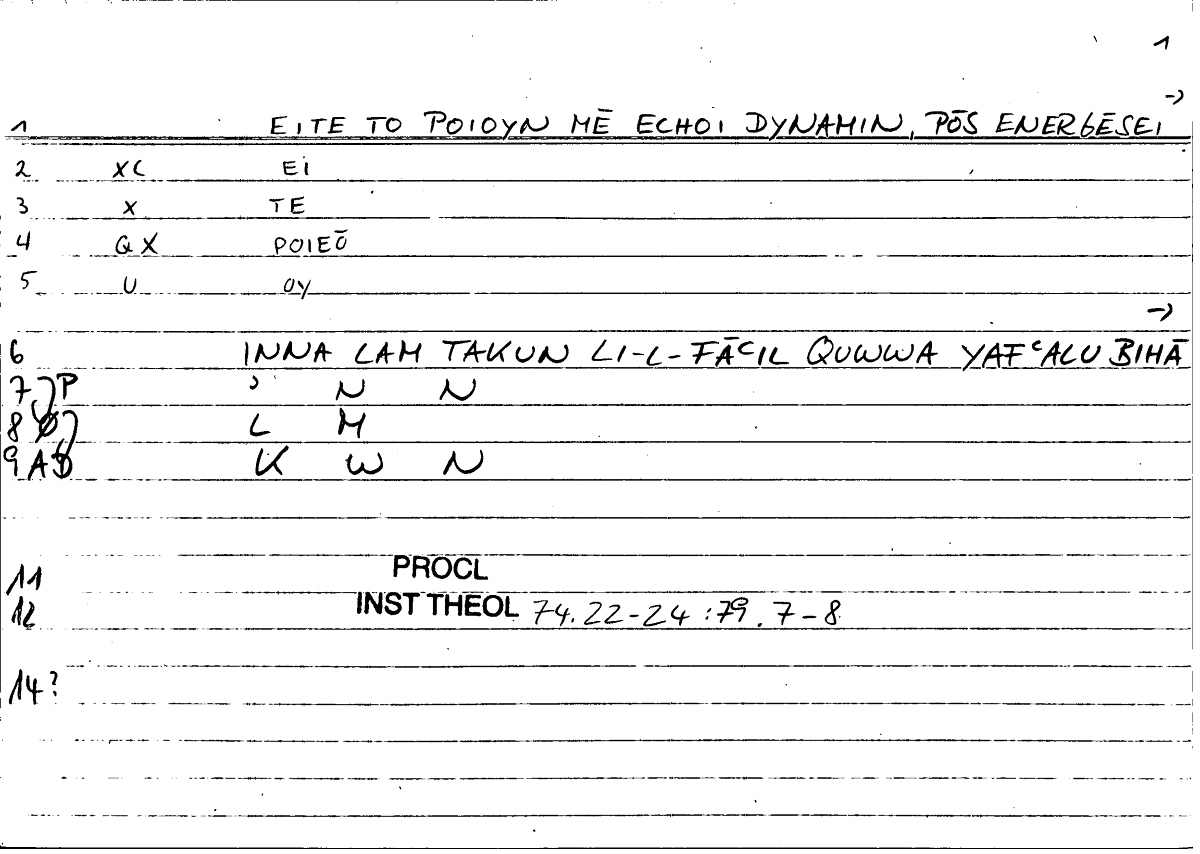 1
→
1 EITE TO POIOYN MĒ ECHOI DYNAMIN, PŌS ENERGĒSEI
2 XC EI
3 X TE
4 GX POIEŌ
5 U OY
→
6 INNA LAM TAKUN LI-L-FĀʿIL QUWWA YAFʿALU BIHĀ
7 P ʾ N N
8 L M
9 AB K W N
11 PROCL
12 INST THEOL 74.22-24 : 79.7-8
14?